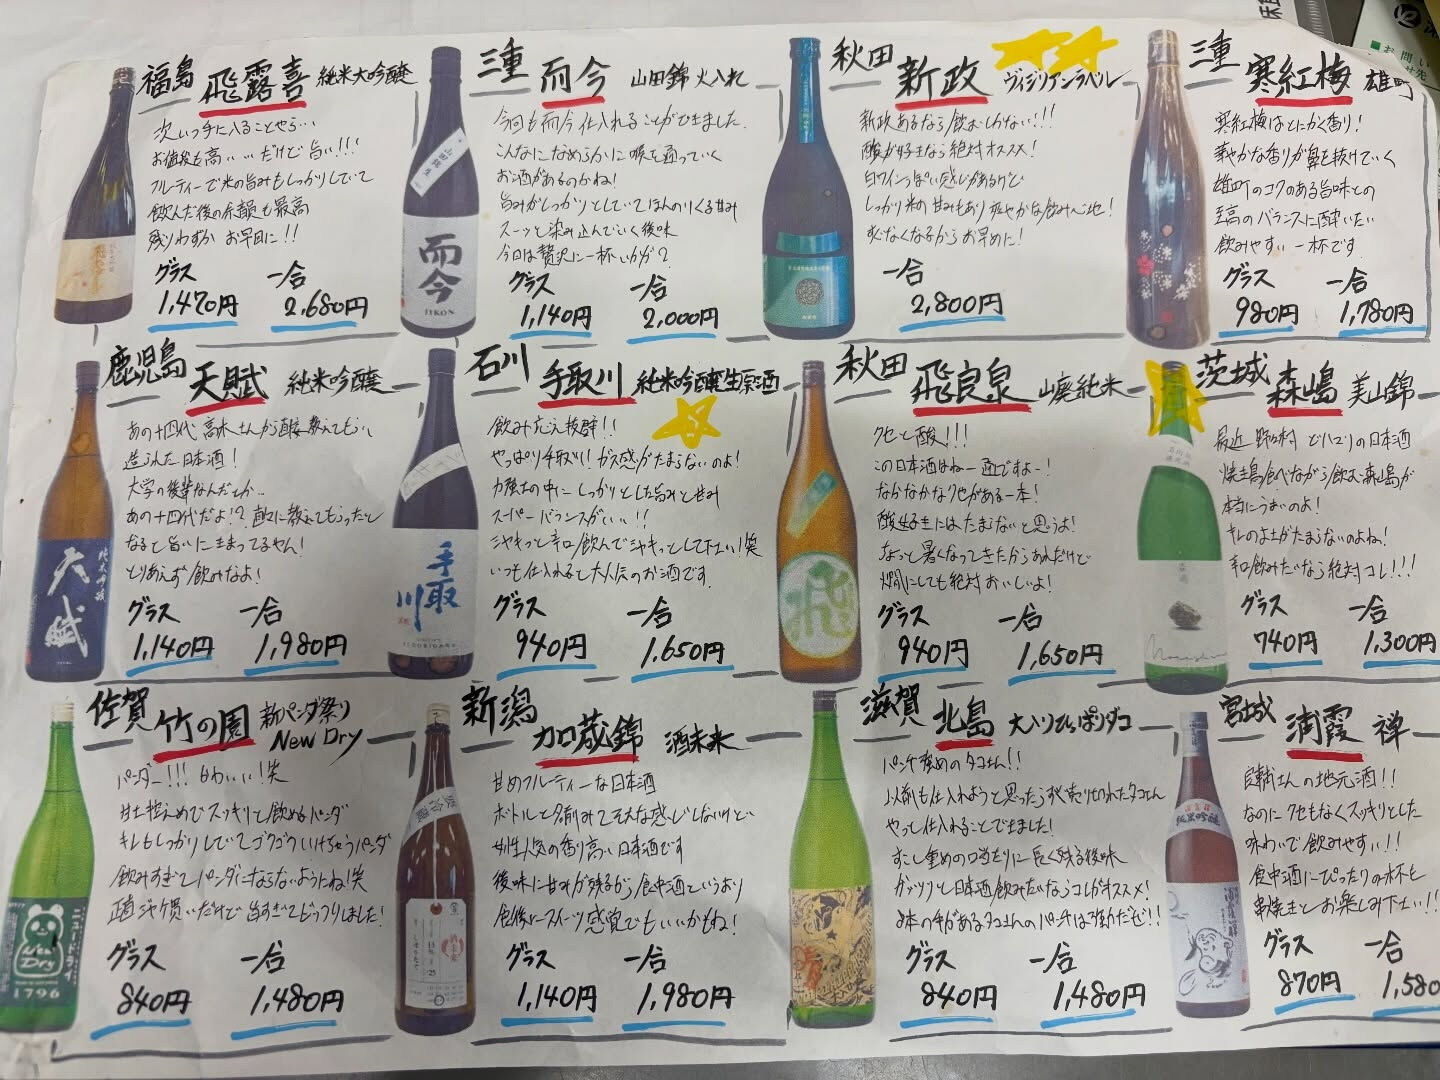 福島 飛露喜 純米大吟醸
次いつ手に入ることやら…
お値段も高いいいだけど旨い!!!
フルーティーで米の旨みもしっかりしていて
飲んだ後の余韻も最高
残りわずか お早目に!!
グラス 一合
1,470円 2,680円
三重 而今 山田錦 火入れ
今回も而今仕入れることができました。
こんなになめらかに喉を通っていく
お酒があるのかね!
旨みがしっかりとしていてほんのりくる甘み
スーッと染み込んでいく後味
今日は贅沢に一杯いかが?
グラス 一合
1,140円 2,000円
而今
JIKON
秋田 新政 ヴィリジアンラベル
新政あるなら飲むしかない!!!
酸が好きなら絶対オススメ!
白ワインっぽい感じがあるけど
しっかり米の甘みもあり 爽やかな飲み心地!
すぐなくなるからお早めに!
一合
2,800円
三重 寒紅梅 雄町
寒紅梅はとにかく香り!
華やかな香りが鼻を抜けていく
雄町のコクのある旨味との
至高のバランスに酔いたい
飲みやすい一杯です
グラス 一合
980円 1,780円
鹿児島 天賦 純米吟醸
あの十四代 高木さんから直接教えてもらい
造られた日本酒!
大学の後輩なんだとか..
あの十四代だよ!? 直に教えてもらったと
なると旨いに決まってるやん!
とりあえず飲みなよ!
グラス 一合
1,140円 1,980円
純米吟醸
天賦
石川 手取川 純米吟醸生原酒
飲み応え抜群!!
やっぱり手取川! ガス感がたまらないのよ!
力強さの中にしっかりとした旨みと甘み
スーパーバランスがいい!!
シャキっと辛口飲んでシャキっとして下さい!笑
いつも仕入れると大人気のお酒です。
グラス 一合
940円 1,650円
手取川
TEDORIGAWA
秋田 飛良泉 山廃純米
クセと酸!!!
この日本酒はね一通ですよー!
なかなかなクセがある一本!
酸好きにはたまらないと思うよ!
ちょっと暑くなってきたからあれだけど
燗にしても絶対おいしいよ!
グラス 一合
940円 1,650円
飛
茨城 森嶋 美山錦
最近 野村 どハマりの日本酒
焼き鳥食べながら飲む森嶋が
本当にうまいのよ!
キレのよさがたまらないのよね!
辛口飲みたいなら絶対コレ!!!
グラス 一合
740円 1,300円
佐賀 竹の園 新パンダ祭り
New Dry
パンダー!!! かわいい!笑
甘さ控えめでスッキリと飲めるパンダ
キレもしっかりしていてゴクゴクいけちゃうパンダ
飲みすぎてパンダにならないようにね!笑
正直ジャケ買いだけど旨すぎてビックリしました!
グラス 一合
840円 1,480円
ニュードライ
New Dry
1796
新潟 加茂錦 酒未来
甘めフルーティーな日本酒
ボトルと名前みて そんな感じしないけど
女性人気の香り高い日本酒です
後味に甘みが残るから食中酒というより
食後にスイーツ感覚でもいいかもね!
グラス 一合
1,140円 1,980円
滋賀 北島 大入りひっぱりダコ
パンチ強めのタコさん!!
以前も仕入れようと思ったらすぐ売り切れたタコさん
やっと仕入れることできました!
すこし重めの口当たりに長く残る後味
ガッツリと日本酒飲みたいならコレがオススメ!
8本の手があるタコさんのパンチは強力だぜ!!
グラス 一合
840円 1,480円
宮城 浦霞 禅
良輔さんの地元酒!!
なのにクセもなくスッキリとした
味わいで飲みやすい!!
食中酒にぴったりの一杯を
串焼きとお楽しみ下さい!!
グラス 一合
870円 1,580
純米吟醸